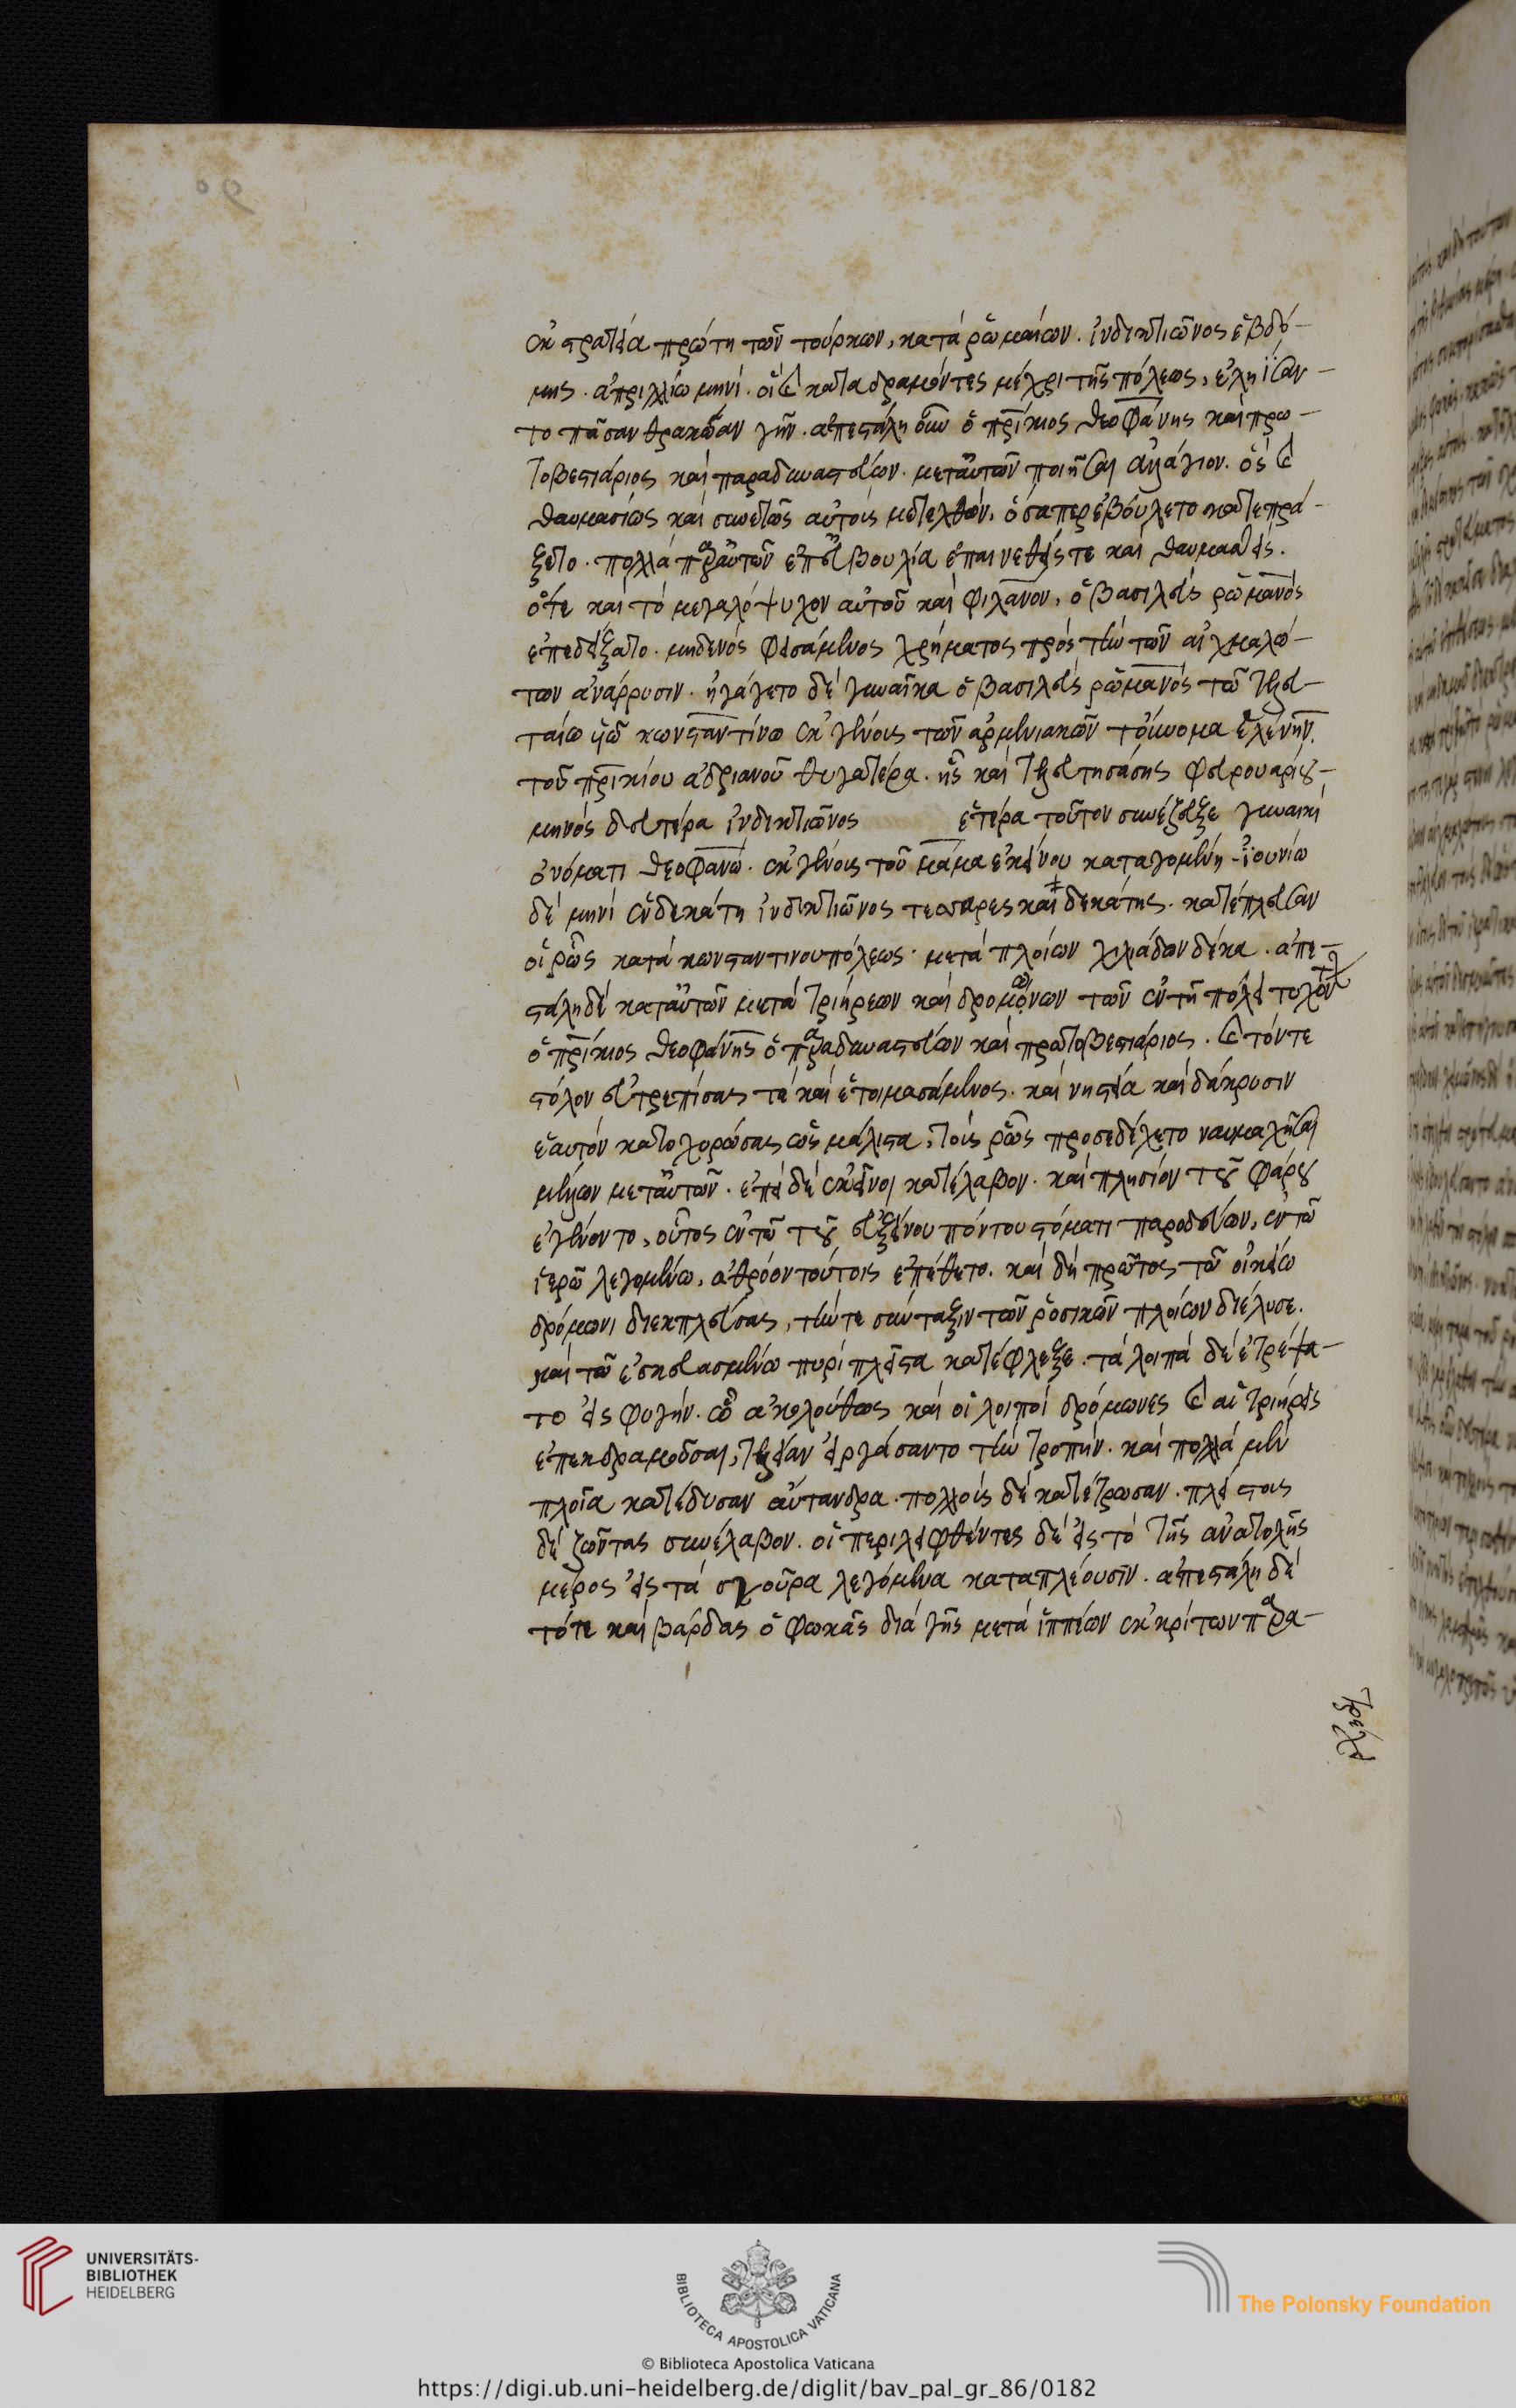 90
ἐκστρατεία πρώτη τῶν τούρκων, κατὰ ῥωμαίων. ἰνδικτιῶνος ἑβδό-
μης. ἀπριλλίω μηνί. οἳ καὶ καταδραμόντες μέχρι τῆς πόλεως, ἐληίσαν-
το πᾶσαν θρακῶαν γῆν. ἀπεστάλη οὖν ὁ πρίκιος θεοφάνης καὶ πρω-
τοβεστιάριος καὶ παραδυναστεύων. μετ' αὐτῶν ποιῆσαι ἀλλάγιον. ὃς καὶ
θαυμασίως καὶ συνετῶς αὐτοῖς μετελθὼν, ὅσαπερ ἐβούλετο κατεπρά-
ξετο. πολλὰ παρ' αὐτῶν ἐπ' εὐβουλία ἐπαινεθείς τε καὶ θαυμασθείς.
ὅτε καὶ τὸ μεγαλόψυχον αὐτοῦ καὶ φιλανον, ὁ βασιλεὺς ῥωμανὸς
ἐπεδείξατο. μηδενὸς φεισάμενος χρήματος πρὸς τὴν τῶν αἰχμαλώ-
των ἀνάρρυσιν. ἠγάγετο δὲ γυναῖκα ὁ βασιλεὺς ῥωμανὸς τῶ τελευ-
ταίω υἱῶ κωνσταντίνω ἐκ γένους τῶν ἀρμενιακῶν τοὔνομα ἑλένην.
τοῦ πρικίου ἀδριανοῦ θυγατέρα. ἧς καὶ τελευτησάσης φευρουαρίου
μηνὸς δευτέρα ἰνδικτιῶνος ἑτέρα τοῦτον συνέζευξε γυναικὶ
ὀνόματι θεοφανὼ. ἐκ γένους τοῦ μάμα ἐκείνου καταγομένη. ἰουνίω
δὲ μηνὶ ἑνδεκάτη ἰνδικτιῶνος τεσσαρες καὶ δεκάτης. κατέπλευσαν
οἱ ῥῶς κατὰ κωνσταντινουπόλεως. μετὰ πλοίων χιλιάδων δέκα. ἀπε-
στάλη δὲ κατ' αὐτῶν μετὰ τριήρεων καὶ δρομώνων τῶν ἐν τῆ πόλει τυχόντων
ὁ πρίκιος θεοφάνης ὁ παραδυναστεύων καὶ πρωτοβεστιάριος. καὶ τόν τε
στόλον εὐτρεπίσας τε καὶ ἑτοιμασάμενος. καὶ νηστεία καὶ δάκρυσιν
ἑαυτὸν κατοχυρώσας ὡς μάλιστα, τοὺς ῥῶς προσεδέχετο ναυμαχῆσαι
μέλλων μετ' αὐτῶν. ἐπεὶ δὲ ἐκεῖνοι κατέλαβον. καὶ πλησίον τοῦ φάρου
ἐγένοντο, οὗτος ἐν τῶ τοῦ εὐξείνου πόντου στόματι παρεδεύων, ἐν τῶ
ἱερῶ λεγομένω, ἀθρόον τούτοις ἐπέθετο. καὶ δὴ πρῶτος τῶ οἰκείω
δρόμωνι διεκπλεύσας, τήν τε σύνταξιν τῶν ῥοσικῶν πλοίων διέλυσε.
καὶ τῶ ἐσκευασμένω πυρὶ πλεῖστα κατέφλεξε. τὰ λοιπὰ δὲ ἐτρέψα-
το εἰς φυγήν. ὧ ἀκολούθως καὶ οἱ λοιποὶ δρόμωνες καὶ αἱ τριήρεις
ἐπεκδραμοῦσαι, τελείαν εἰργάσαντο τὴν τροπήν. καὶ πολλὰ μὲν
πλοῖα κατέδυσαν αὔτανδρα. πολλοὺς δὲ κατέτρωσαν. πλείστους
δὲ ζῶντας συνέλαβον. οἱ περιλειφθέντες δὲ εἰς τὸ τῆς ἀνατολῆς
μέρος εἰς τὰ σγοῦρα λεγόμενα καταπλέουσιν. ἀπεστάλη δὲ
τότε καὶ βάρδας ὁ φωκᾶς διὰ γῆς μετὰ ἱππέων ἐκκρίτων παρα-
τρέχ
UNIVERSITÄTS-
BIBLIOTHEK
HEIDELBERG
BIBLIOTECA APOSTOLICA VATICANA
The Polonsky Foundation
© Biblioteca Apostolica Vaticana
https://digi.ub.uni-heidelberg.de/diglit/bav_pal_gr_86/0182